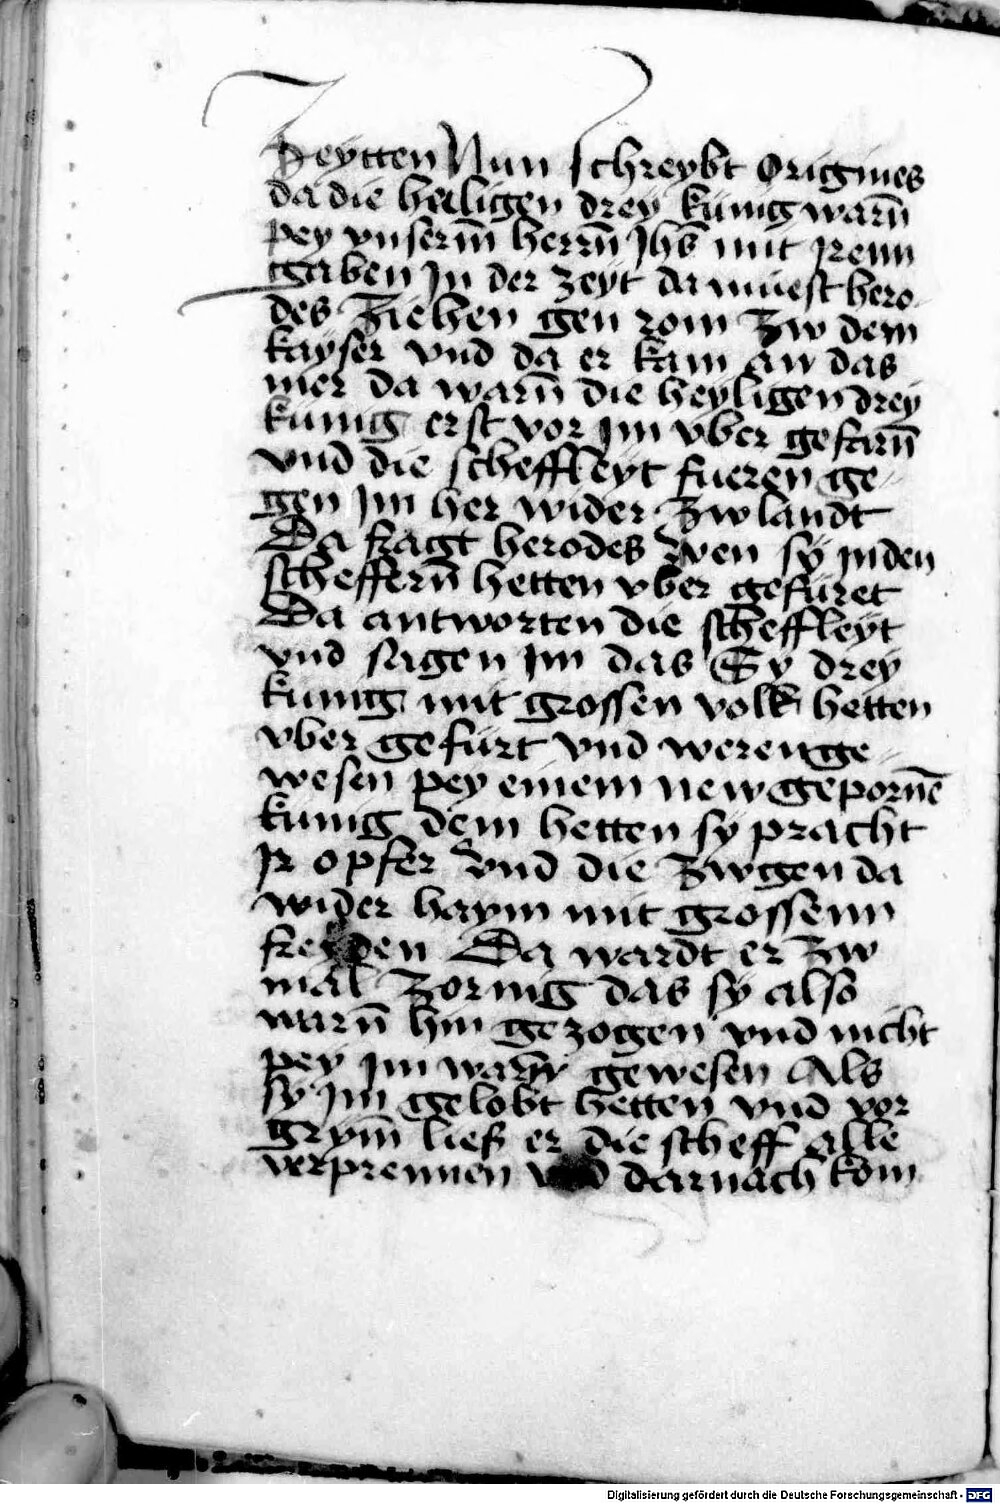 Zeytten Nun schreybt Origines
da die heiligen drey kunig warn̄
pey vnserm̄ herrn̄ Jhs̄ mit jrenn
gaben Jn der zeyt da muest hero-
des Ziehen gen rom Zw dem
kayser vnd da er kam an das
mer da warn̄ die heyligen drey
kunig erst vor jm vber gefarn̄
vnd die scheffleyt fueren ge-
gen Jm her wider Zw landt
Da fragt herodes wen sÿ jn den
scheffern̄ hetten vber gefüret
Da antworten die scheffleyt
vnd sagen jm das Sy drey
kunig mit grossen volk hetten
vber gefürt vnd weren ge-
wesen pey einem new gepornē
kunig dem hetten sÿ pracht
Jr opfer vnd die Zwgen da
wider haym mit grossenn
freyden Da wardt er Zw
mal Zornig das sÿ also
warn̄ hin gezogen vnd nicht
pey jm gewesen Als
sÿ Jm gelobt hetten vnd vor
grym̄ lies er die scheff alle
verprennen vnd darnach kom
Digitalisierung gefördert durch die Deutsche Forschungsgemeinschaft - DFG